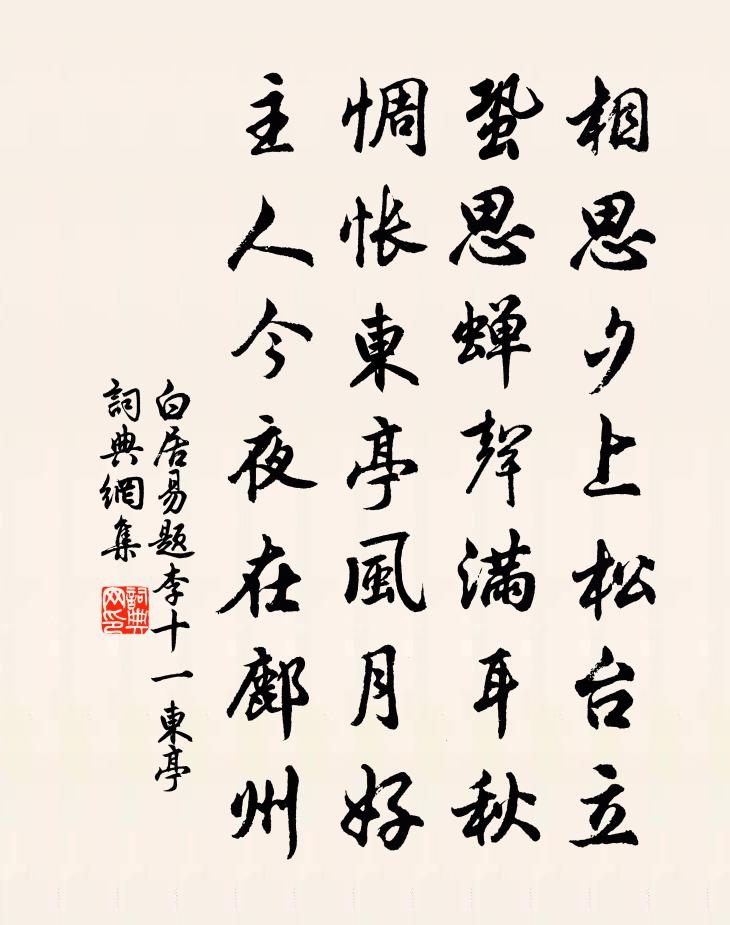 相思夕上松台立
蛩思蝉聲满耳秋
惆怅東亭風月好
主人今夜在鄜州
白居易题李十一東亭
詞典網集
詞典网印